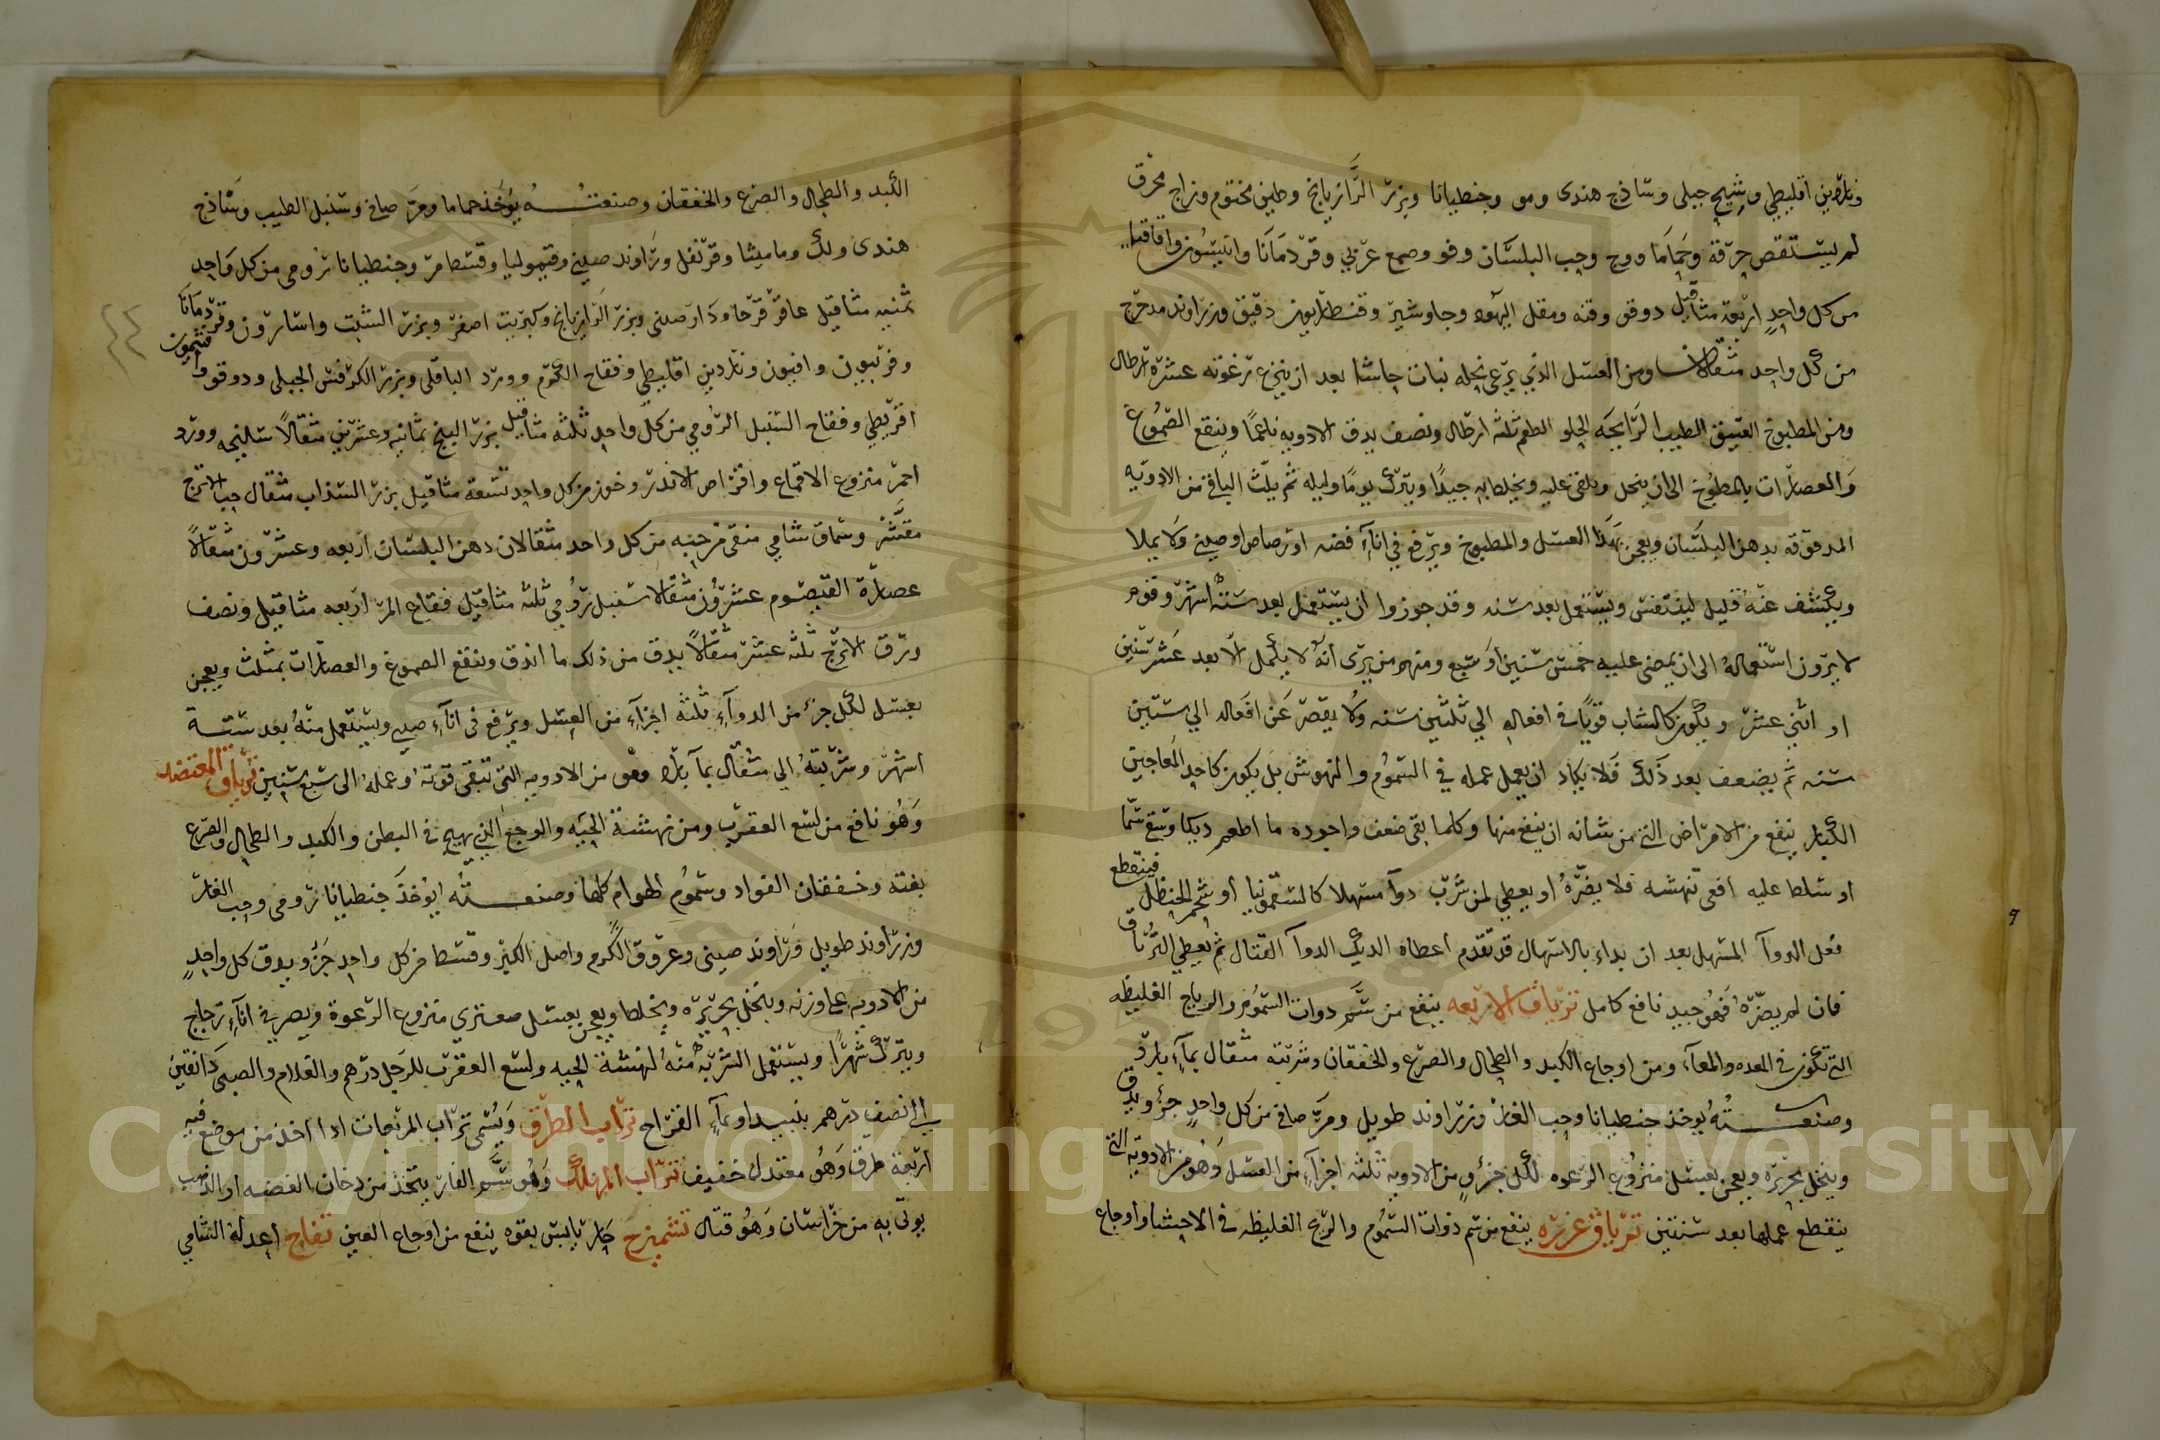 وناردين اقليطي وشيح جبلى وساذج هندى ومو وجنطيانا وبزر الرازيانج وطين مختوم وزاج محرق
لم يستقص حرقه وحماما ووج وحب البلسان وفو وصمغ عربي وقردمانا وانيسون واقاقيا
من كل واحد اربعة مثاقيل دوقو وقنه ومقل اليهود وجاوشير وقنطاريون دقيق وزراوند مدحرج
من كل واحد مثقالان ومن العسل الذي يرعى نحله نبات حاشا بعد ان ينزع رغوته عشرة ارطال
ومن المطبوخ العتيق الطيب الرايحه الحلو الطعم ثلثه ارطال ونصف يدق الادويه ناعما وينقع الصموغ
والعصارات بالمطبوخ الى ان ينحل ويلقى عليه ويخلط به جيدا ويترك يوما وليله ثم يلث الباقي من الادويه
المدقوقه بدهن البلسان ويعجن بهذا العسل والمطبوخ ويرفع في اناء فضه او رصاص او صيني ولا يملا
ويكشف عنه قليل ليتنفس ويستعمل بعد سنه وقد جوزوا ان يستعمل بعد ستة اشهر وقوم
لا يرون استعماله الى ان يمضى عليه خمس سنين او سبع ومنهم من يرى انه لا يكمل الا بعد عشر سنين
او اثني عشر ويكون كالشاب قويا في افعاله الي ثلثين سنه ولا يقصر عن افعاله الي ستين
سنه ثم يضعف بعد ذلك فلا يكاد ان يعمل عمله في السموم والنهوش بل يكون كاحد المعاجين
الكبار ينفع من الامراض التي من شانه ان ينفع منها وكلما بقى ضعف واجوده ما اطعم ديكا وسقى سما
او سلط عليه افعى تنهشه فلا يضره او يعطي لمن شرب دوآ مسهلا كالسقمونيا او شحم الحنظل فينقطع
فعل الدوآ المسهل بعد ان بداء بالاسهال قد تقدم اعطاه الديك الدوآ القتال ثم يعطي الترياق
فان لم يضره فهو جيد نافع كامل ترياق الاربعه ينفع من سم دوات السموم والرياح الغليظه
التي تكون في المعده والمعآء ومن اوجاع الكبد والطحال والصرع والخفقان وشربته مثقال بمآء بارد
وصنعته يوخذ جنطيانا وحب الغار وزراوند طويل ومر صافي من كل واحد جزؤ ويدق
وينخل بحريره ويعجن بعسل منزوع الرغوه لكل جزؤ من الادويه ثلثه اجزآء من العسل وهو من الادويه التي
ينقطع عملها بعد سنتين ترياق عزره ينفع من سم ذوات السموم والريح الغليظه في الاحشا واوجاع
الكبد والطحال والصرع والخفقان وصنعته يوخذ حماما ومر صافي وسنبل الطيب وساذج
هندى ولك وماميثا وقرنفل وراوند صيني وقيموليا وقسط مر وجنطيانا رومى من كل واحد
ثمنيه مثاقيل عاقرقرحا ودارصيني وبزر الرازيانج وكبريت اصفر وبزر الشبت واسارون وقردمانا
وفربيون وافيون وناردين اقليطي وفقاح الكرم وورد الباقلى وبزر الكرفس الجبلى ودوقو وافثيمون
اقريطي وفقاح السنبل الرومي من كل واحد ثلثه مثاقيل بزر البنج ثمانيه وعشرين مثقالا سليخه وورد
احمر منزوع الاقماع واقراص الاندر وخون من كل واحد تسعة مثاقيل بزر السذاب مثقال حب الاترج
مقشر وسماق شامي منقى من حبه من كل واحد مثقالان دهن البلسان اربعه وعشرون مثقالا
عصارة القيصوم عشرون مثقالا سنبل رومي ثلثه مثاقيل فقاح المر اربعه مثاقيل ونصف
ورق الاترج ثلثه عشر مثقالا يدق من ذلك ما اندق وينقع الصموغ والعصارات بمثلث ويعجن
بعسل لكل جزء من الدوآء ثلثه اجزآء من العسل ويرفع في اناء صيني ويستعمل منه بعد ستة
اشهر وشربته الي مثقال بمآ بارد وهو من الادويه التى تبقى قوته وعمله الى سبع سنين ترياق المعتضد
وهو نافع من لسع العقرب ومن نهشة الحيه والوجع الذي يهيج في البطن والكبد والطحال والصرع
بغته وخفقان الفواد وسموم الهوام كلها وصنعته ايوخذ جنطيانا رومى وحب الغار
وزراوند طويل وراوند صينى وعروق الكرم واصل الكبر وقسط من كل واحد جزؤ يدق كل واحد
من الادويه على وزنه وينخل بحريره ويخلط ويعجن بعسل صعتري منزوع الرغوة ويصير في انآء زجاج
ويترك شهرا ويستعمل الشربه منه لنهشة الحيه ولسع العقرب للرجل درهم والغلام والصبي دانقين
الي نصف درهم بنبيذ او بمآء القراح تراب الطرق ويسمى تراب المربعات اذا اخذ من موضع فيه
اربعة طرق وهو معتدل خفيف تراب الهالك وهو سم الفار يتخذ من دخان الفضه او الذهب
يوتى به من خراسان وهو قتال تشميزج حار يابس بقوه ينفع من اوجاع العين تفاح اعدله الشامي